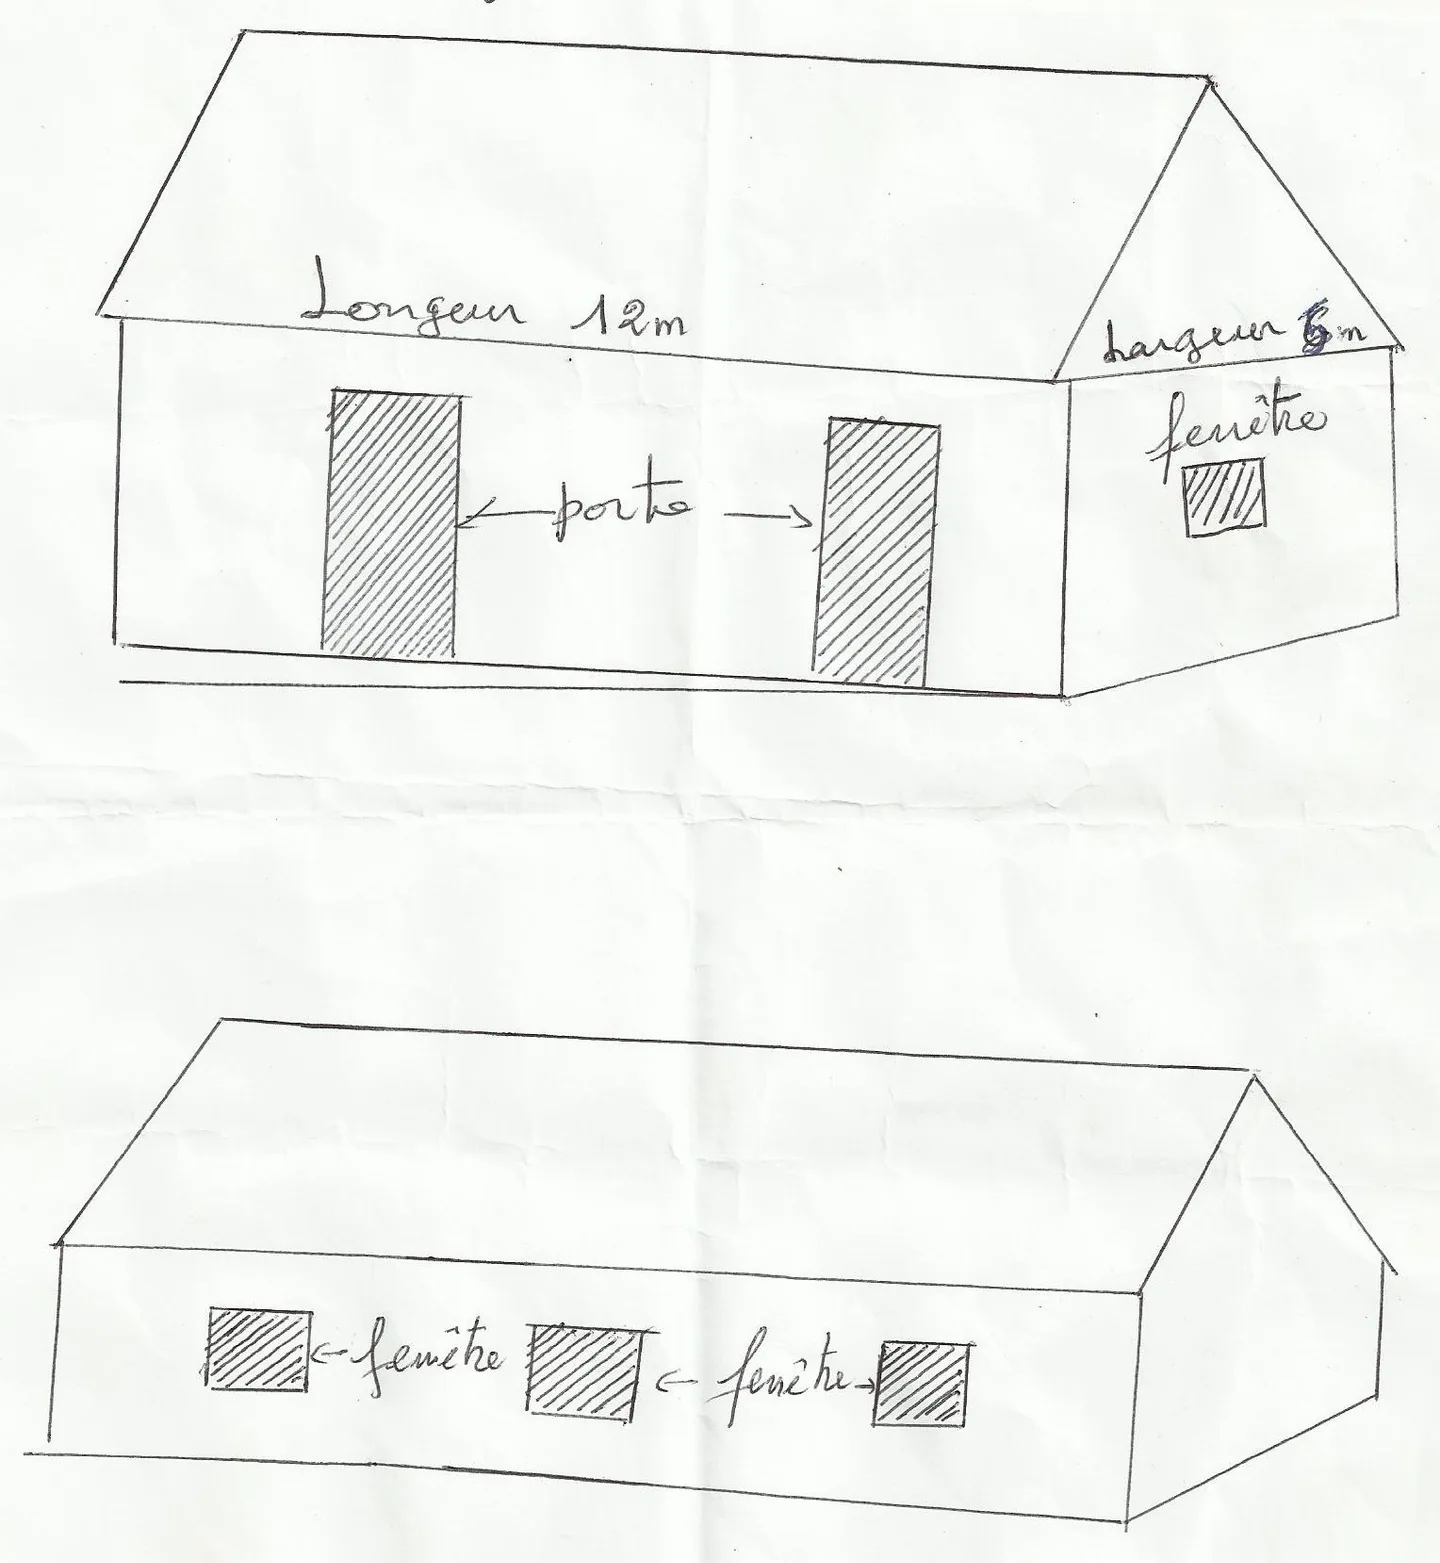 Longeur 12m
Largeur m
fenêtre
porte
fenêtre
fenêtre